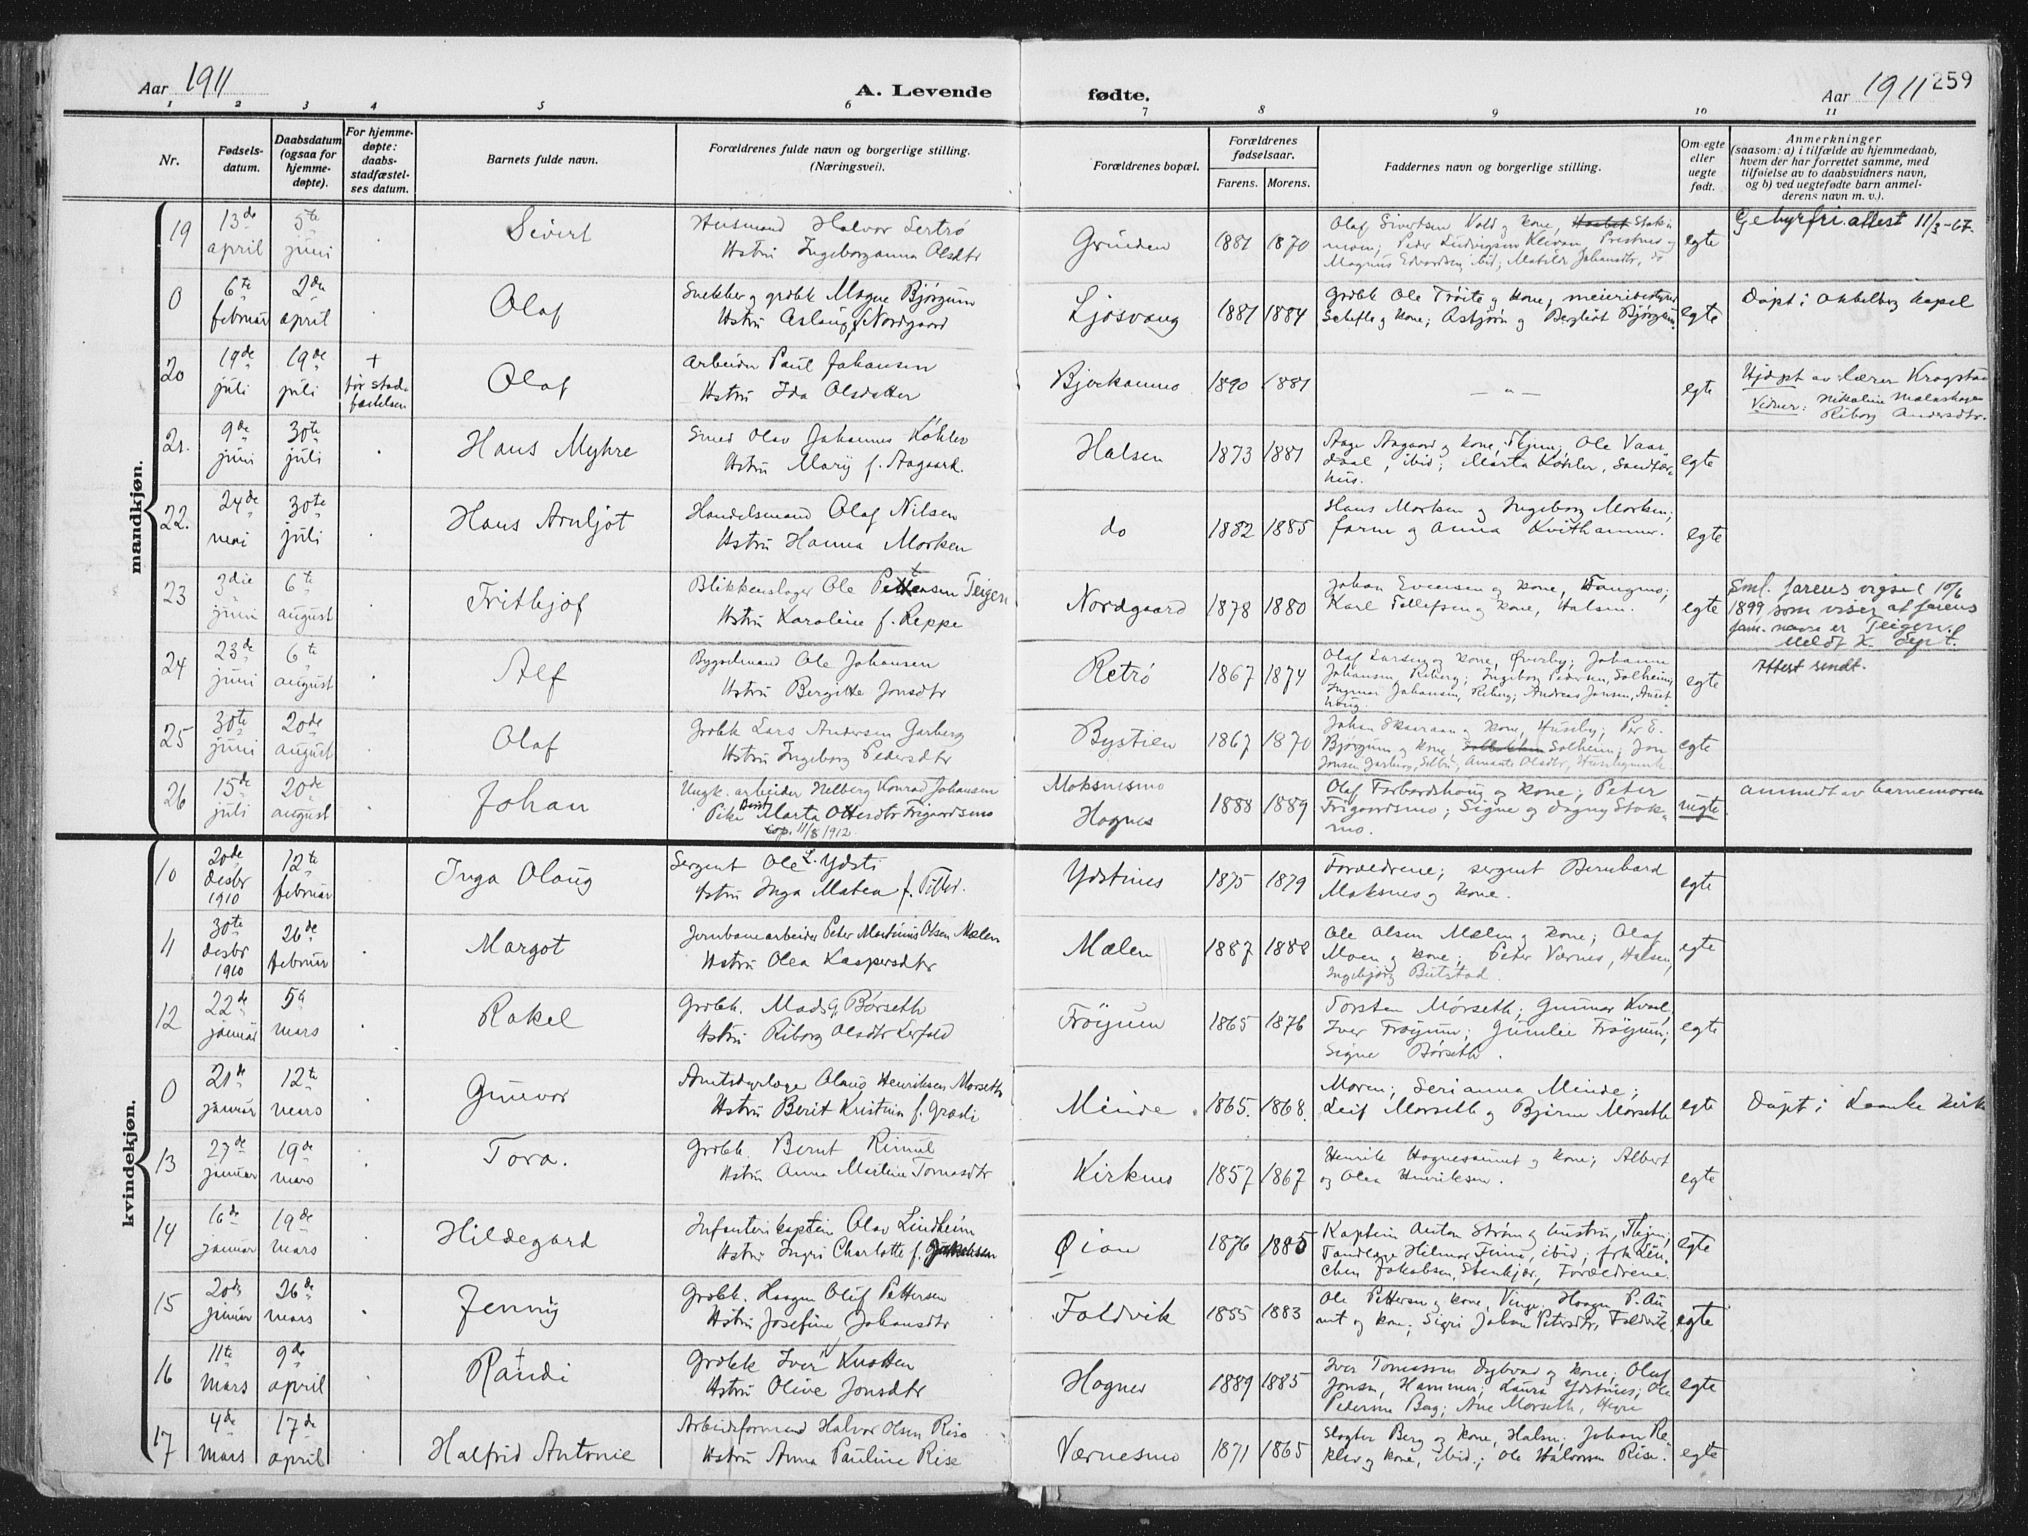 Aar 1911
A. Levende
fødte.
Aar 1911
259
1 2 3 4 5 6 7 8 9 10 11
Nr.
Fødsels-
datum.
Daabsdatum
(ogsaa for
hjemme-
døpte).
For hjemme-
døpte:
daabs-
stadfæstel-
ses datum.
Barnets fulde navn.
Forældrenes fulde navn og borgerlige stilling.
(Næringsvei).
Forældrenes bopæl.
Forældrenes
fødselsaar.
Farens. Morens.
Faddernes navn og borgerlige stilling.
Om egte
eller
uegte
født.
Anmerkninger
(saasom: a) i tilfælde av hjemmedaab,
hvem der har forrettet samme, med
tilføielse av to daabsvidners navn,
og b) ved uegtefødte barn anmel-
derens navn m. v.).
mandkjøn.
19 13de april 5te juni Sivert
Husmand Halvor Lertrø
Hstru Ingeborganna Olsdtr
Grinden 1881 1870
Olaf Sivertsen Vold og kone,
Magnus Edvardsen, ibid; Matilde Johansdtr, do
egte Gebyrfri attest 11/3-67.
0 6te februar 2den april Olaf
Snekker og grdbk Magne Bjørgum
Hstru Aslaug f. Nordgaard
Ljosvang 1881 1884
Grdbk Ole Trøite og kone; meieribestyrer
og kone; Asbjørn og Bergliot Bjørgum
egte Døpt i kapel
20 19de juli 19de juli + før stad-
fæstelsen Olaf
Arbeider Paul Johansen
Hstru Ida Olsdatter
Bjørkanmo 1890 1881
— " — egte
Hjdøpt av lærer Kragstad
Vidner: Nikoline
Riborg Andersdtr.
21. 9de juni 30te juli Hans Myhre
Smed Olav Johannes Køhler
Hstru Mary f. Aagaard.
Halsen 1873 1881
Aage Aagaard og kone, Tlijem; Ole Vaar-
daal, ibid; Marta Køhler, Sandfær-
hus.
egte
22. 24de mai 30te juli Hans Arnljot
Handelsmand Olaf Nilsen
Hstru Hanna Morken
do 1882 1885
Hans Morken og Ingeborg Morken;
faren og Anna Kvithammer.
egte
23 3die juni 6te august Fritkjof
Blikkenslager Ole Pettersen Teigen
Hstru Karoline f. Reppe
Nordgaard 1878 1880
Johan Evensen og kone, Tangmo;
Karl Tollefsen og kone, Halsen.
egte Sml. farens vigsel 10/6
1899 som viser at farens
fam.-navn er Teigen.
Meldt K. Dept.
24 23de juni 6te august Alf
Bygselmand Ole Johansen
Hstru Bergitte Jonsdtr
Retrø 1867 1874
Olaf Larsen og kone, Øverby; Johanna
Johansen, Reberg; Ingeborg Pedersen, Solheim;
Ingemar Johansen, Reberg; Andreas Jansen,
egte Attest sendt.
25 30te juni 20de august Olaf
Grdbk Lars Andersen Garberg
Hstru Ingeborg Pedersdtr
Bystien 1867 1870
Johan Skaaraan og kone, Husby; Per E.
Bjørgum og kone, Solheim; Jon
Jonsen Garberg, Selbu; Amanda Olsdtr,
egte
26 15de juli 20de august Johan
Ungk. arbeider Helberg Konrad Johansen
Pike Marta Ottersdtr Frigaardsmo
Cop. 11/8 1912
Moksnesmo
Hognes 1888 1889
Olaf Forbordshoug og kone; Peter
Frigaardsmo; Signe og Dagny Stok-
mo.
uegte anmeldt av barnemoren
kvindekjøn.
10 20de desbr 1910 12te februar Inga Olaug
Sergent Ole L. Ydsti
Hstru Inga Matea f. Tiller.
Ydstines 1875 1879
Forældrene; sergent Bernhard
Moksnes og kone.
egte
11 30te desbr 1910 26de februar Margot
Jernbanearbeider Peter Martinus Olsen Mælen
Hstru Olea Kaspersdtr
Mælen 1887 1888
Ole Olsen Mælen og kone; Olaf
Moen og kone; Peter Værnes, Halsen;
Ingebjørg Butstad.
egte
12 22de januar 5te mars Rakel
Grdbk. Mads G. Børseth
Hstru Riborg Olsdtr
Frøigum 1865 1876
Torsten Mørseth; Gunnar Kvaal,
Iver Frøigum; Gunlie Frøigum;
Signe Børseth.
egte
0 21de januar 12te mars Gunvor
Amtsdyrlæge Olaus Henriksen Morseth
Hstru Berit Kristine f. Grædi
Minde 1865. 1868.
Moren; Serianna Minde;
Leif Morseth og Bjarne Morseth
egte Døpt i Laanke kirk
13 27de januar 19de mars Tora.
Grdbk. Bernt Rimul
Hstru Anna Martine Tomasdtr
Kirknes 1857 1867
Henrik Hognesaunet og kone; Albert
og Olea Henriksen.
egte
14 16de januar 19de mars Hildegard
Infanterikaptein Olav Lindheim
Hstru Ingri Charlotte f. Jakobsen
Øian 1876 1885
Kaptein Anton Strøm og hustru, Tlijem;
Tandlæge Hilmar Finne, ibid; frk Lin-
chen Jakobsen, Stenkjær, Forældrene.
egte
15 20de januar 26de mars Jenny
Grdbk. Haagen Oluf Pettersen
Hstru Josefine Johansdtr
Foldvik 1855 1883
Ole Pettersen og kone, Vinge; Haagen P. Au-
net og kone; Sigri Johan Petersdtr, Foldvik
egte
16 11te mars 9de april Randi
Grdbk Iver Knotten
Hstru Olive Jonsdtr
Hognes 1889 1885
Iver Tomassen Dybvad og kone; Oluf
Jonsen, Hammer; Laura Ydstines; Ole
Pedersen Berg; Ane Morseth, Hegre
egte
17 4de mars 17de april Halfrid Antonie
Arbeidsformand Halvor Olsen Rise
Hstru Anna Pauline Rise
Værnesmo 1871 1865
Slagter Berg og kone, Halsen; Johan Re-
klev og kone, ibid.; Ole Halvorsen Rise.
egte